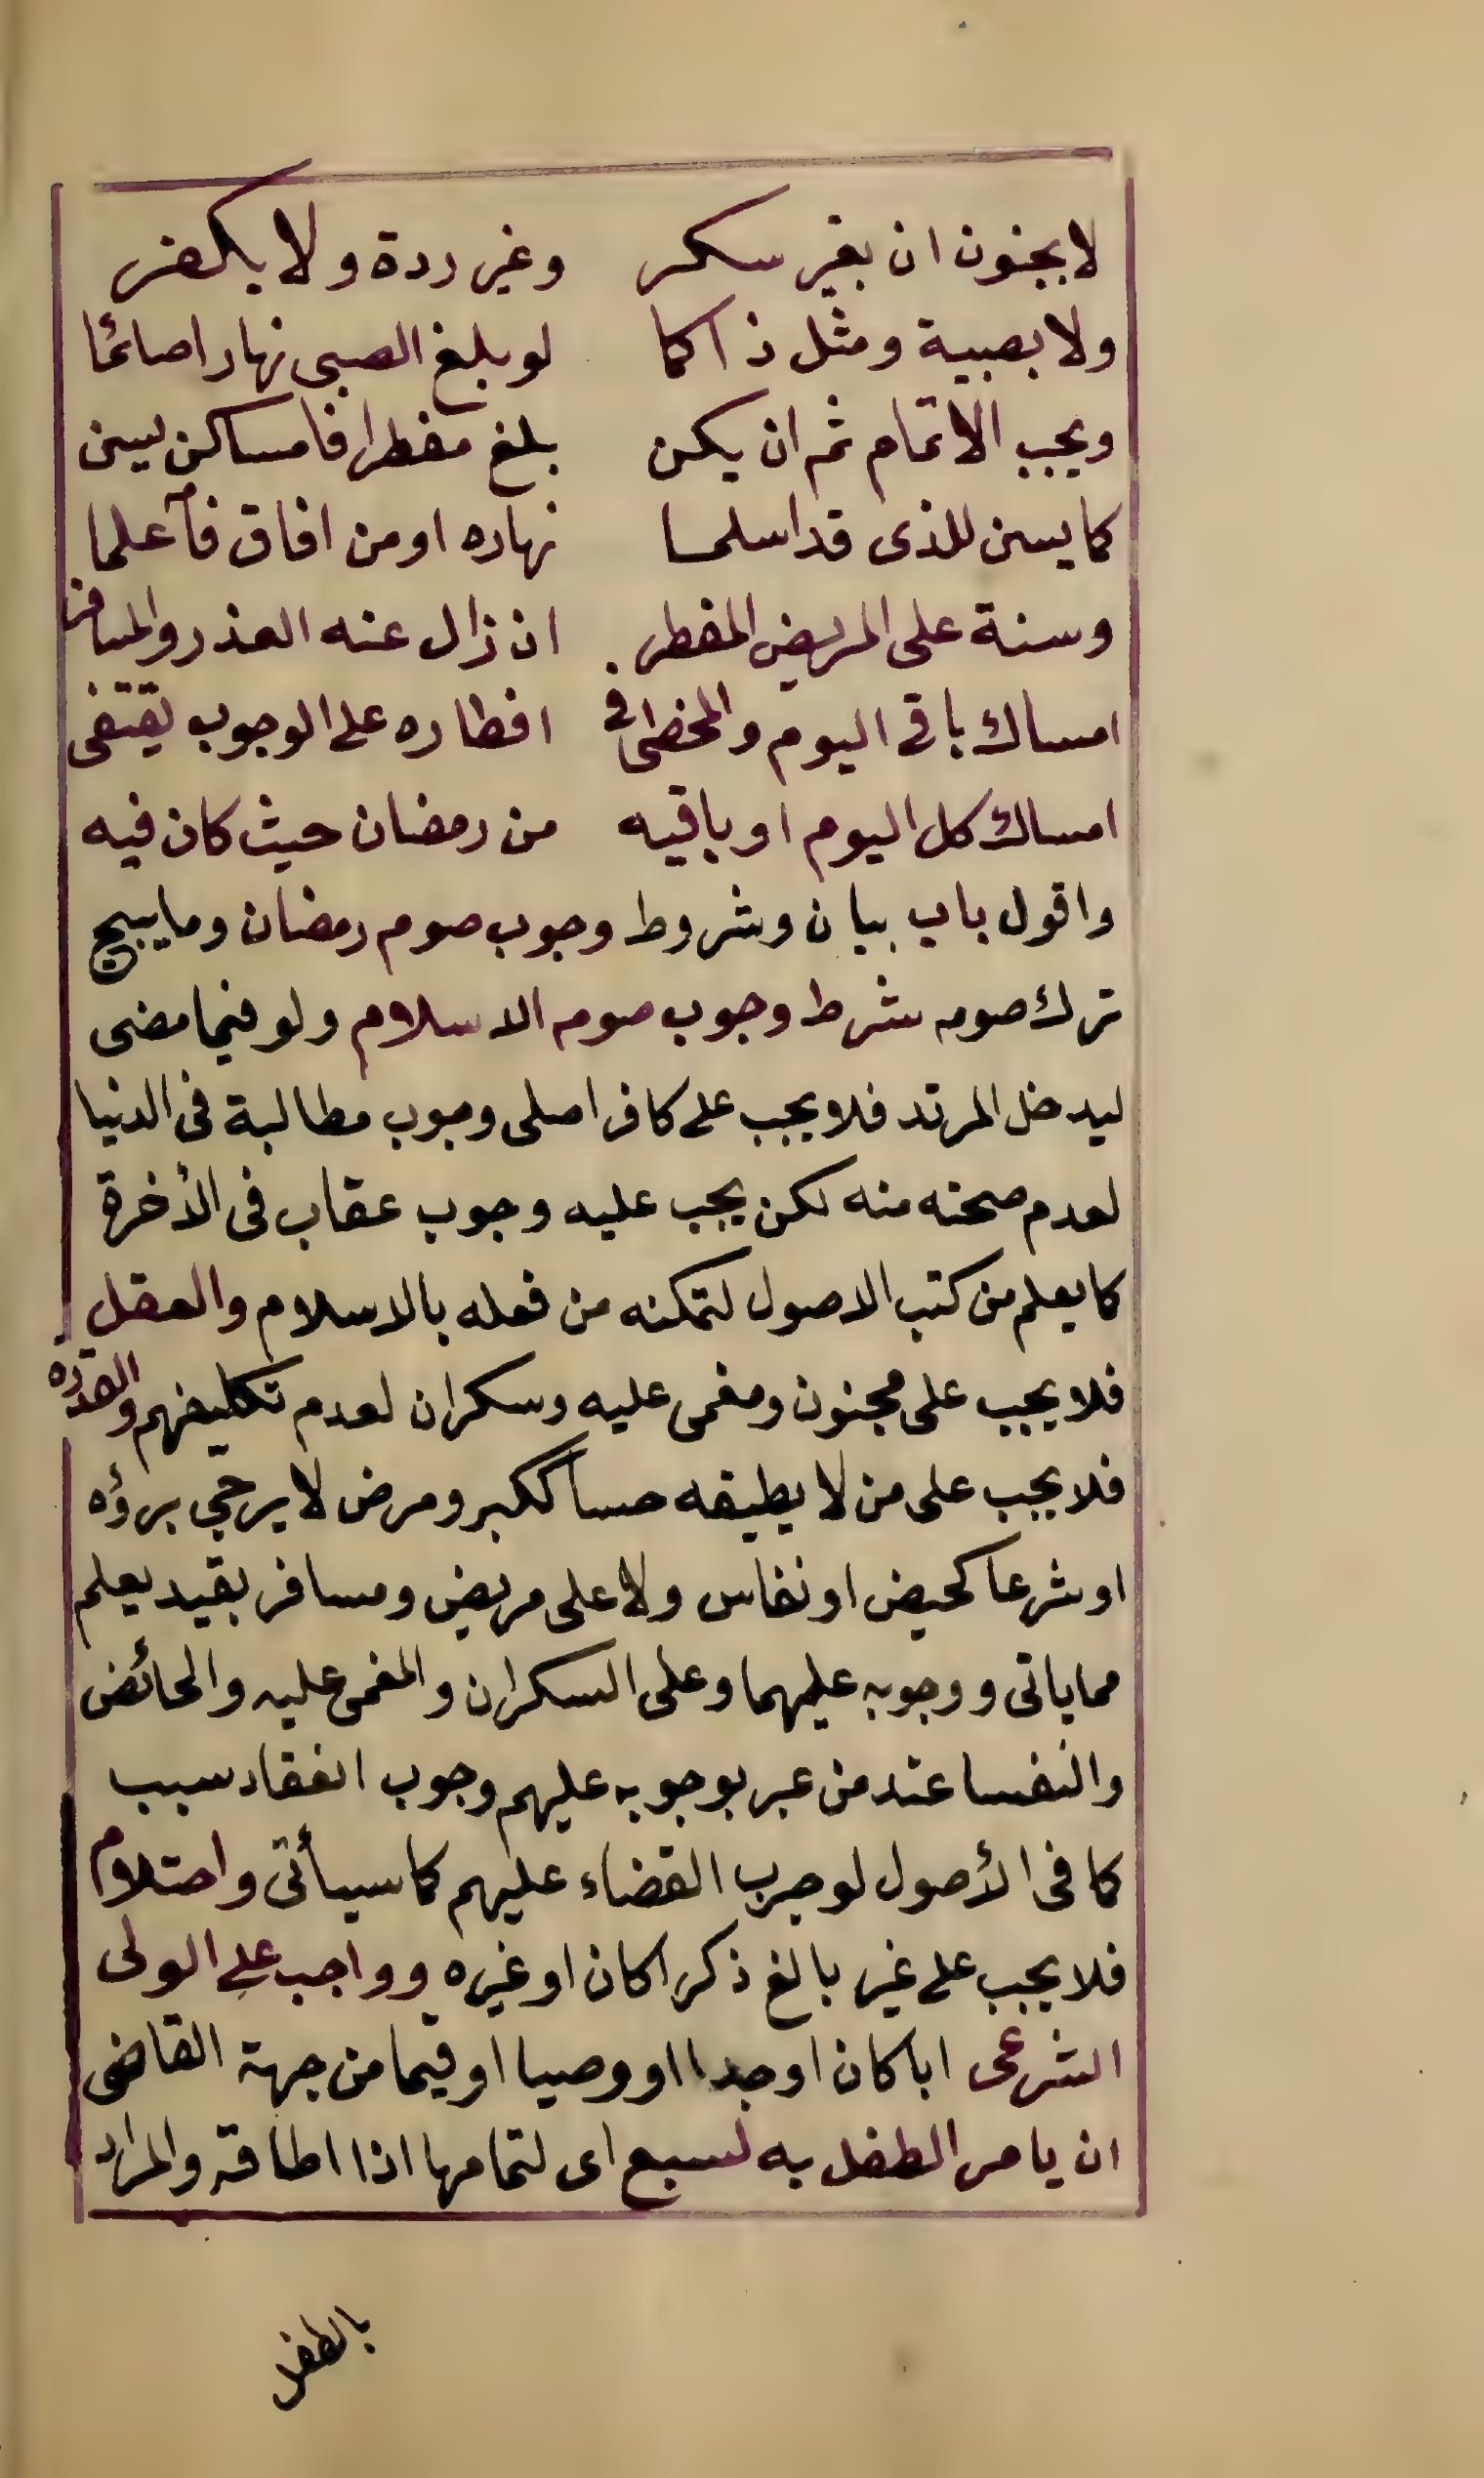 لا بجنون ان بغير سكر وغير ردة ولا بكفر
ولا بصبية ومثل ذا كما لو بلغ الصبى نهارا صائما
ويجب الاتمام ثم ان يكن بلغ مفطرا فامساكن يسن
كما يسن للذى قد اسلما نهاره او من افاق فآعلما
وسنة على المريض المفطر ان زال عنه العذر والمسافر
امساك باقى اليوم والمخطى فى افطاره على الوجوب يقتفى
امساك كل اليوم او باقيه من رمضان حيث كان فيه
واقول باب بيان وشروط وجوب صوم رمضان وما يبيح
ترك صومه شرط وجوب صومه الاسلام ولو فيما مضى
ليدخل المرتد فلا يجب على كافر اصلى وجوب مطالبة فى الدنيا
لعدم صحته منه لكن يجب عليه وجوب عقاب فى الأخرة
كما يعلم من كتب الاصول لتمكنه من فعله بالاسلام والعقل
فلا يجب على مجنون ومغمى عليه وسكران لعدم تكليفهم والقدره
فلا يجب على من لا يطيقه حسا ككبر ومرض لا يرجى برؤه
او شرعا كحيض او نفاس ولا على مريض ومسافر بقيد يعلم
مما ياتى ووجوبه عليهما وعلى السكران والمغمى عليه والحائض
والنفسا عند من عبر بوجوبه عليهم وجوب انعقاد سبب
كما فى الأصول لوجوب القضاء عليهم كما سيأتى واحتلام
فلا يجب على غير بالغ ذكرا كان او غيره وواجب على الولى
الشرعى ابا كان او جدا او وصيا او قيما من جهة القاضى
ان يامر الطفل به لسبع اى لتمامها اذا اطاقه والمراد
بالطفل